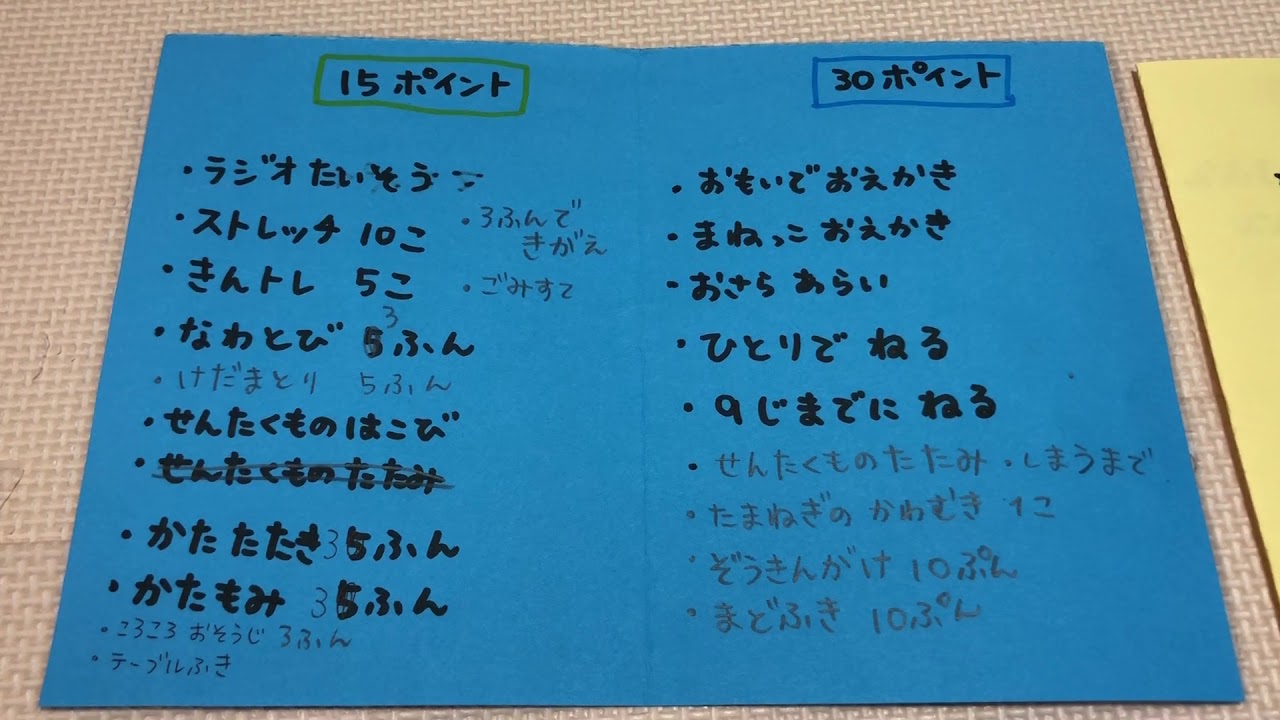 15ポイント
・ラジオたいそう
・ストレッチ 10こ
・きんトレ 5こ
・なわとび 3ふん
・けだまとり 5ふん
・せんたくものはこび
・せんたくものたたみ
・かたたたき 3ふん
・かたもみ 3ふん
・ころころ おそうじ 3ふん
・テーブルふき
・3ふんで
きがえ
・ごみすて
30ポイント
・おもいでおえかき
・まねっこ おえかき
・おさら あらい
・ひとりで ねる
・9じまでに ねる
・せんたくものたたみ・しまうまで
・たまねぎの かわむき 1こ
・ぞうきんがけ 10ぷん
・まどふき 10ぷん